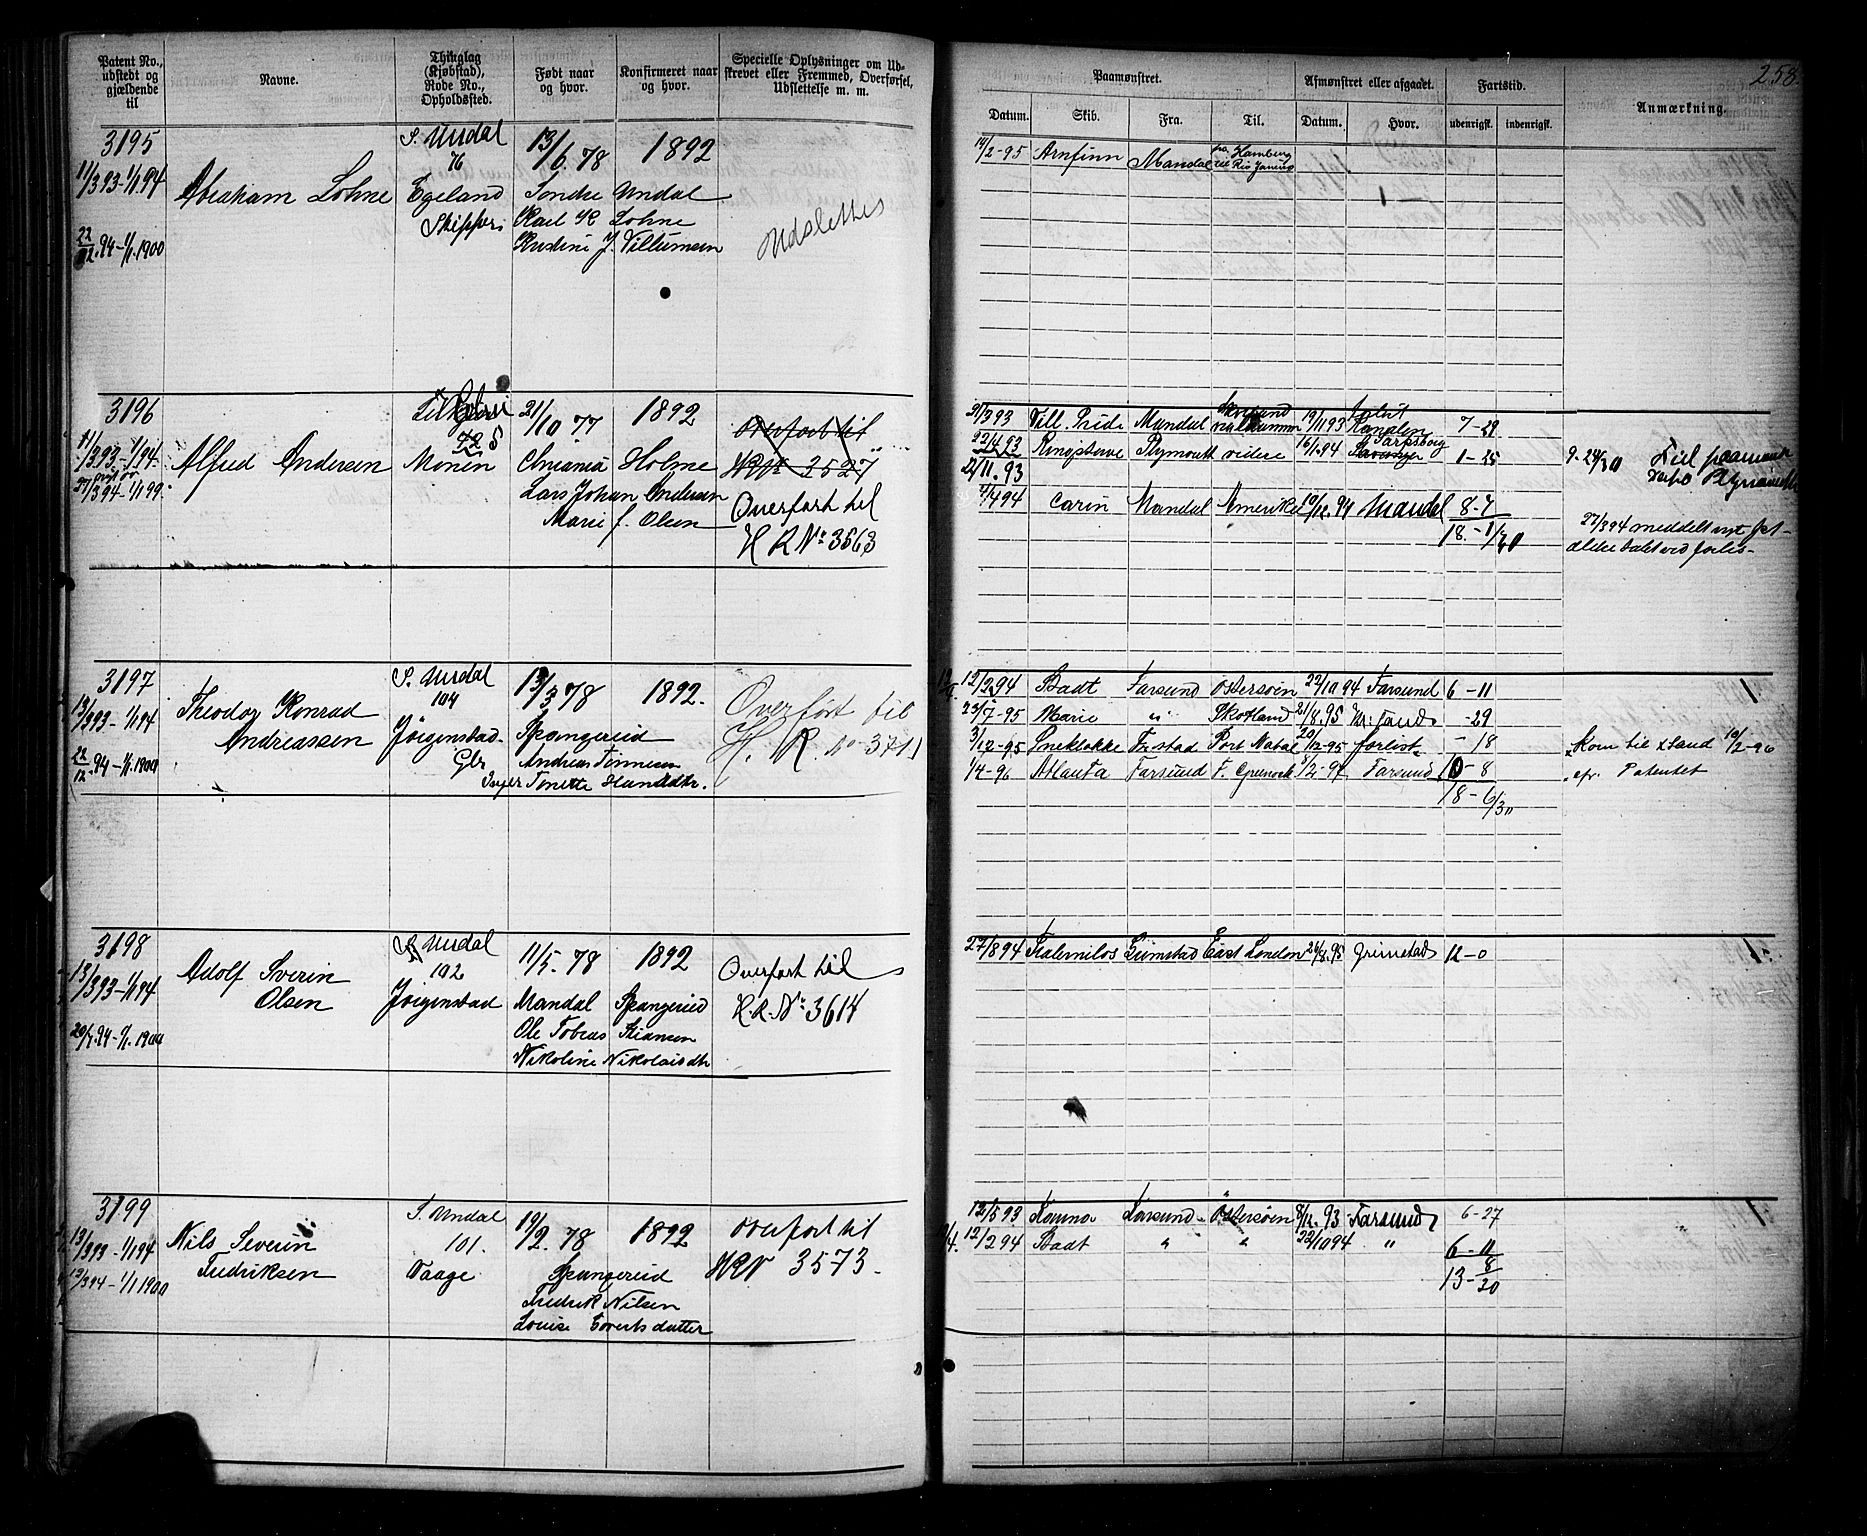 Patent No., udstedt og gjældende til
Navne.
Thinglag (Kjøbstad), Rode No., Opholdssted.
Født naar og hvor.
Konfirmeret naar og hvor.
Specielle Oplysninger om Udskrevet eller Fremmed, Overførsel, Udslettelse m. m.
Paamønstret.
Afmønstret eller afgaaet.
Fartstid.
Anmærkning.
258.
Datum.
Skib.
Fra.
Til.
Datum.
Hvor.
udenrigsk.
indenrigsk.
3195
11/3 93-1/1 94
22/12.94-1/1.1900
Abraham Lohne
S. Undal
76
Egeland
13/6.78
1892
Sondre Undal
Karl K Lohne
J. Villumsen
Udslettes
14/2-95 Arnfinn Mandal Hamberg
til Rio Janeiro
3196
11/3 93-1/1 94
27/3 94-1/1 99
Alfred Andersen
72
Monen
21/10 77
1892
Holme
Lars Johan Andersen
Marie J. Olsen
Overført til
3527
Overført til
H R No 3663
21/3 93 Vill. Pride Mandal 19/11 93 7-29
22/11.93 Plymouth videre 16/1.94 1-25
4/4 94 Carin Mandal Amerika 10/12.94 Mandal 8-7
18-1/30
27/3 94 meddelt nyt
3197
13/3 93-1/1 94
22/12.94-1/1.1900
Theodor Konrad
Andreassen
S. Undal
104
Jørgenstad
Gbr
13/3 78
1892.
Spangereid
Andreas Tønnesen
Inger Tonette
Overført til
H. R. No 3711
12/2 94 Stadt Farsund Østersøen 22/10 94 Farsund 6-11
23/7-95 Marie " Skotland 21/8.95 -29
3/12-95 Sneklokke Port Natal 20/12-95 forlist -18 Kom til Land 10/2-96
1/4-96 Atlanta Farsund Greenock Farsund 10-8 Patentet
18-6/30
3198
13/3 93-1/1 94
20/7.94-1/1.1900
Adolf Sverin
Olsen
S. Undal
102
Jørgenstad
11/5.78
1892
Mandal Spangereid
Ole Tobias
Nikoline Nikolaisdtr
Overført til
H.R. No 3614
27/8 94 Grimstad East London 26/8.95 Grimstad 12-0
3199
13/3 93-1/1 94
12/3 94-1/1 1900
Nils Severin
Fredriksen
S. Undal
101.
Vaage
19/2.78
1892
Spangereid
Fredrik Nilsen
Louise Evertsdatter
Overført til
HRN 3573
12/5 93 Farsund Østersøen 8/12.93 Farsund 6-27
12/2 94 Stadt " " 22/10 94 " 6-11
13-8/30